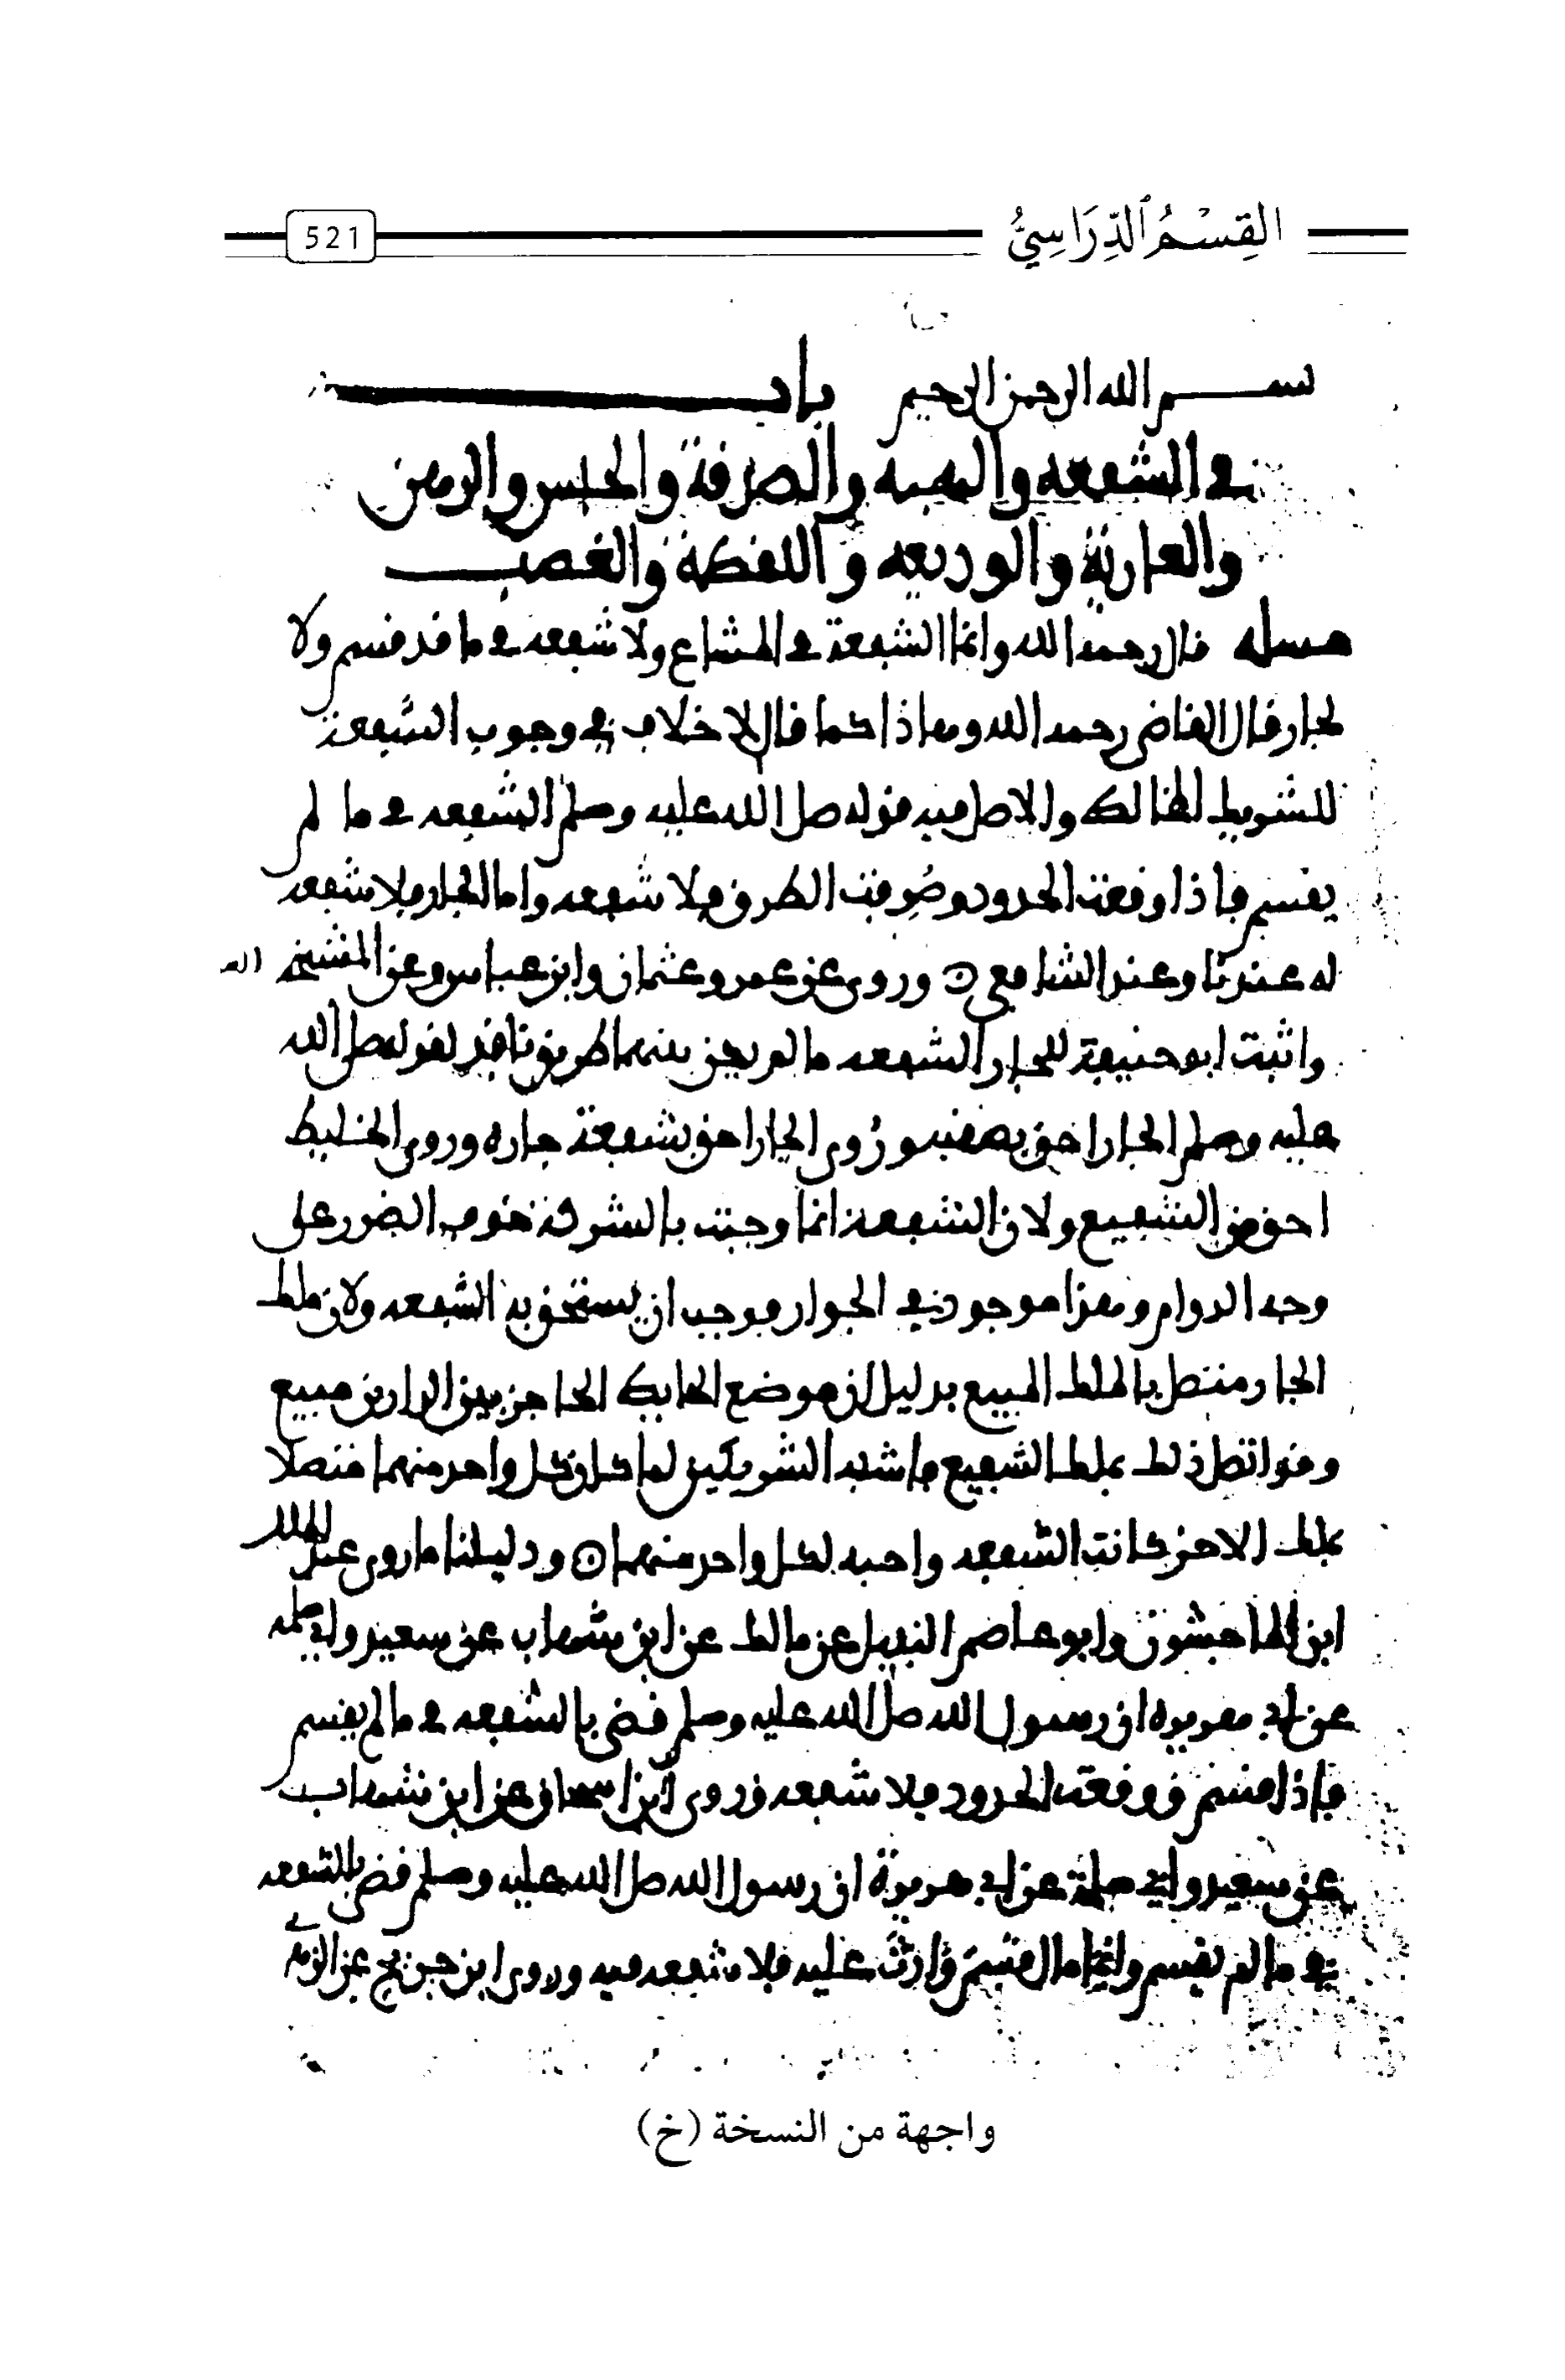 القِسْمُ الدِّرَاسِيُّ
521
بسم الله الرحمن الرحيم باب
في الشفعه والهبه والصدقة والحبس والرهن
والعارية والوديعه واللقطة والغصب
مسله قال رحمه الله وانما الشفعة في المشاع ولا شفعه في ما قد قسم ولا
لجار قال القاضي رحمه الله وهاذا كما قال لا خلاف في وجوب الشفعة
للشريك المالك والاصل فيه قوله صلى الله عليه وسلم الشفعه في ما لم
يقسم فاذا وقعت الحدود وصرفت الطرق فلا شفعه واما الجار فلا شفعه
له عندنا وعند الشافعي وروي عن عمر وعثمان وابن عباس وعن
واثبت ابو حنيفة للجار الشفعه ما لم يكن بينهما طريق نافذ لقوله صلى الله
عليه وسلم الجار احق بصقبه وروي الجار احق بشفعة جاره وروي الخليط
احق من الشفيع ولان الشفعة انما وجبت بالشركة خوف الضرر على
وجه الدوام وهذا موجود في الجوار فوجب ان يستحق به الشفعه ولان ملك
الجار متصل بالملك المبيع بدليل ان موضع الحايط الحاجز بين الدارين مبيع
وقد اتصل ذلك بملك الشفيع فاشبه الشريكين لما كان كل واحد منهما متصلا
بملك الاخر كانت الشفعه واجبه لكل واحد منهما ودليلنا ما روى عبد الملك
ابن الماجشون وابو عاصم النبيل عن مالك عن ابن شهاب عن سعيد وابي سلمه
عن ابي هريره ان رسول الله صلى الله عليه وسلم قضى بالشفعه في ما لم يقسم
فاذا قسم ووقعت الحدود فلا شفعه وروى ابن اسحاق عن ابن شهاب
عن سعيد وابي سلمة عن ابي هريرة ان رسول الله صلى الله عليه وسلم قضى بالشفعه
في ما لم يقسم وايما مال قسم وارث عليه فلا شفعه فيه وروى ابن جريج عن الزهري
واجهة من النسخة (خ)